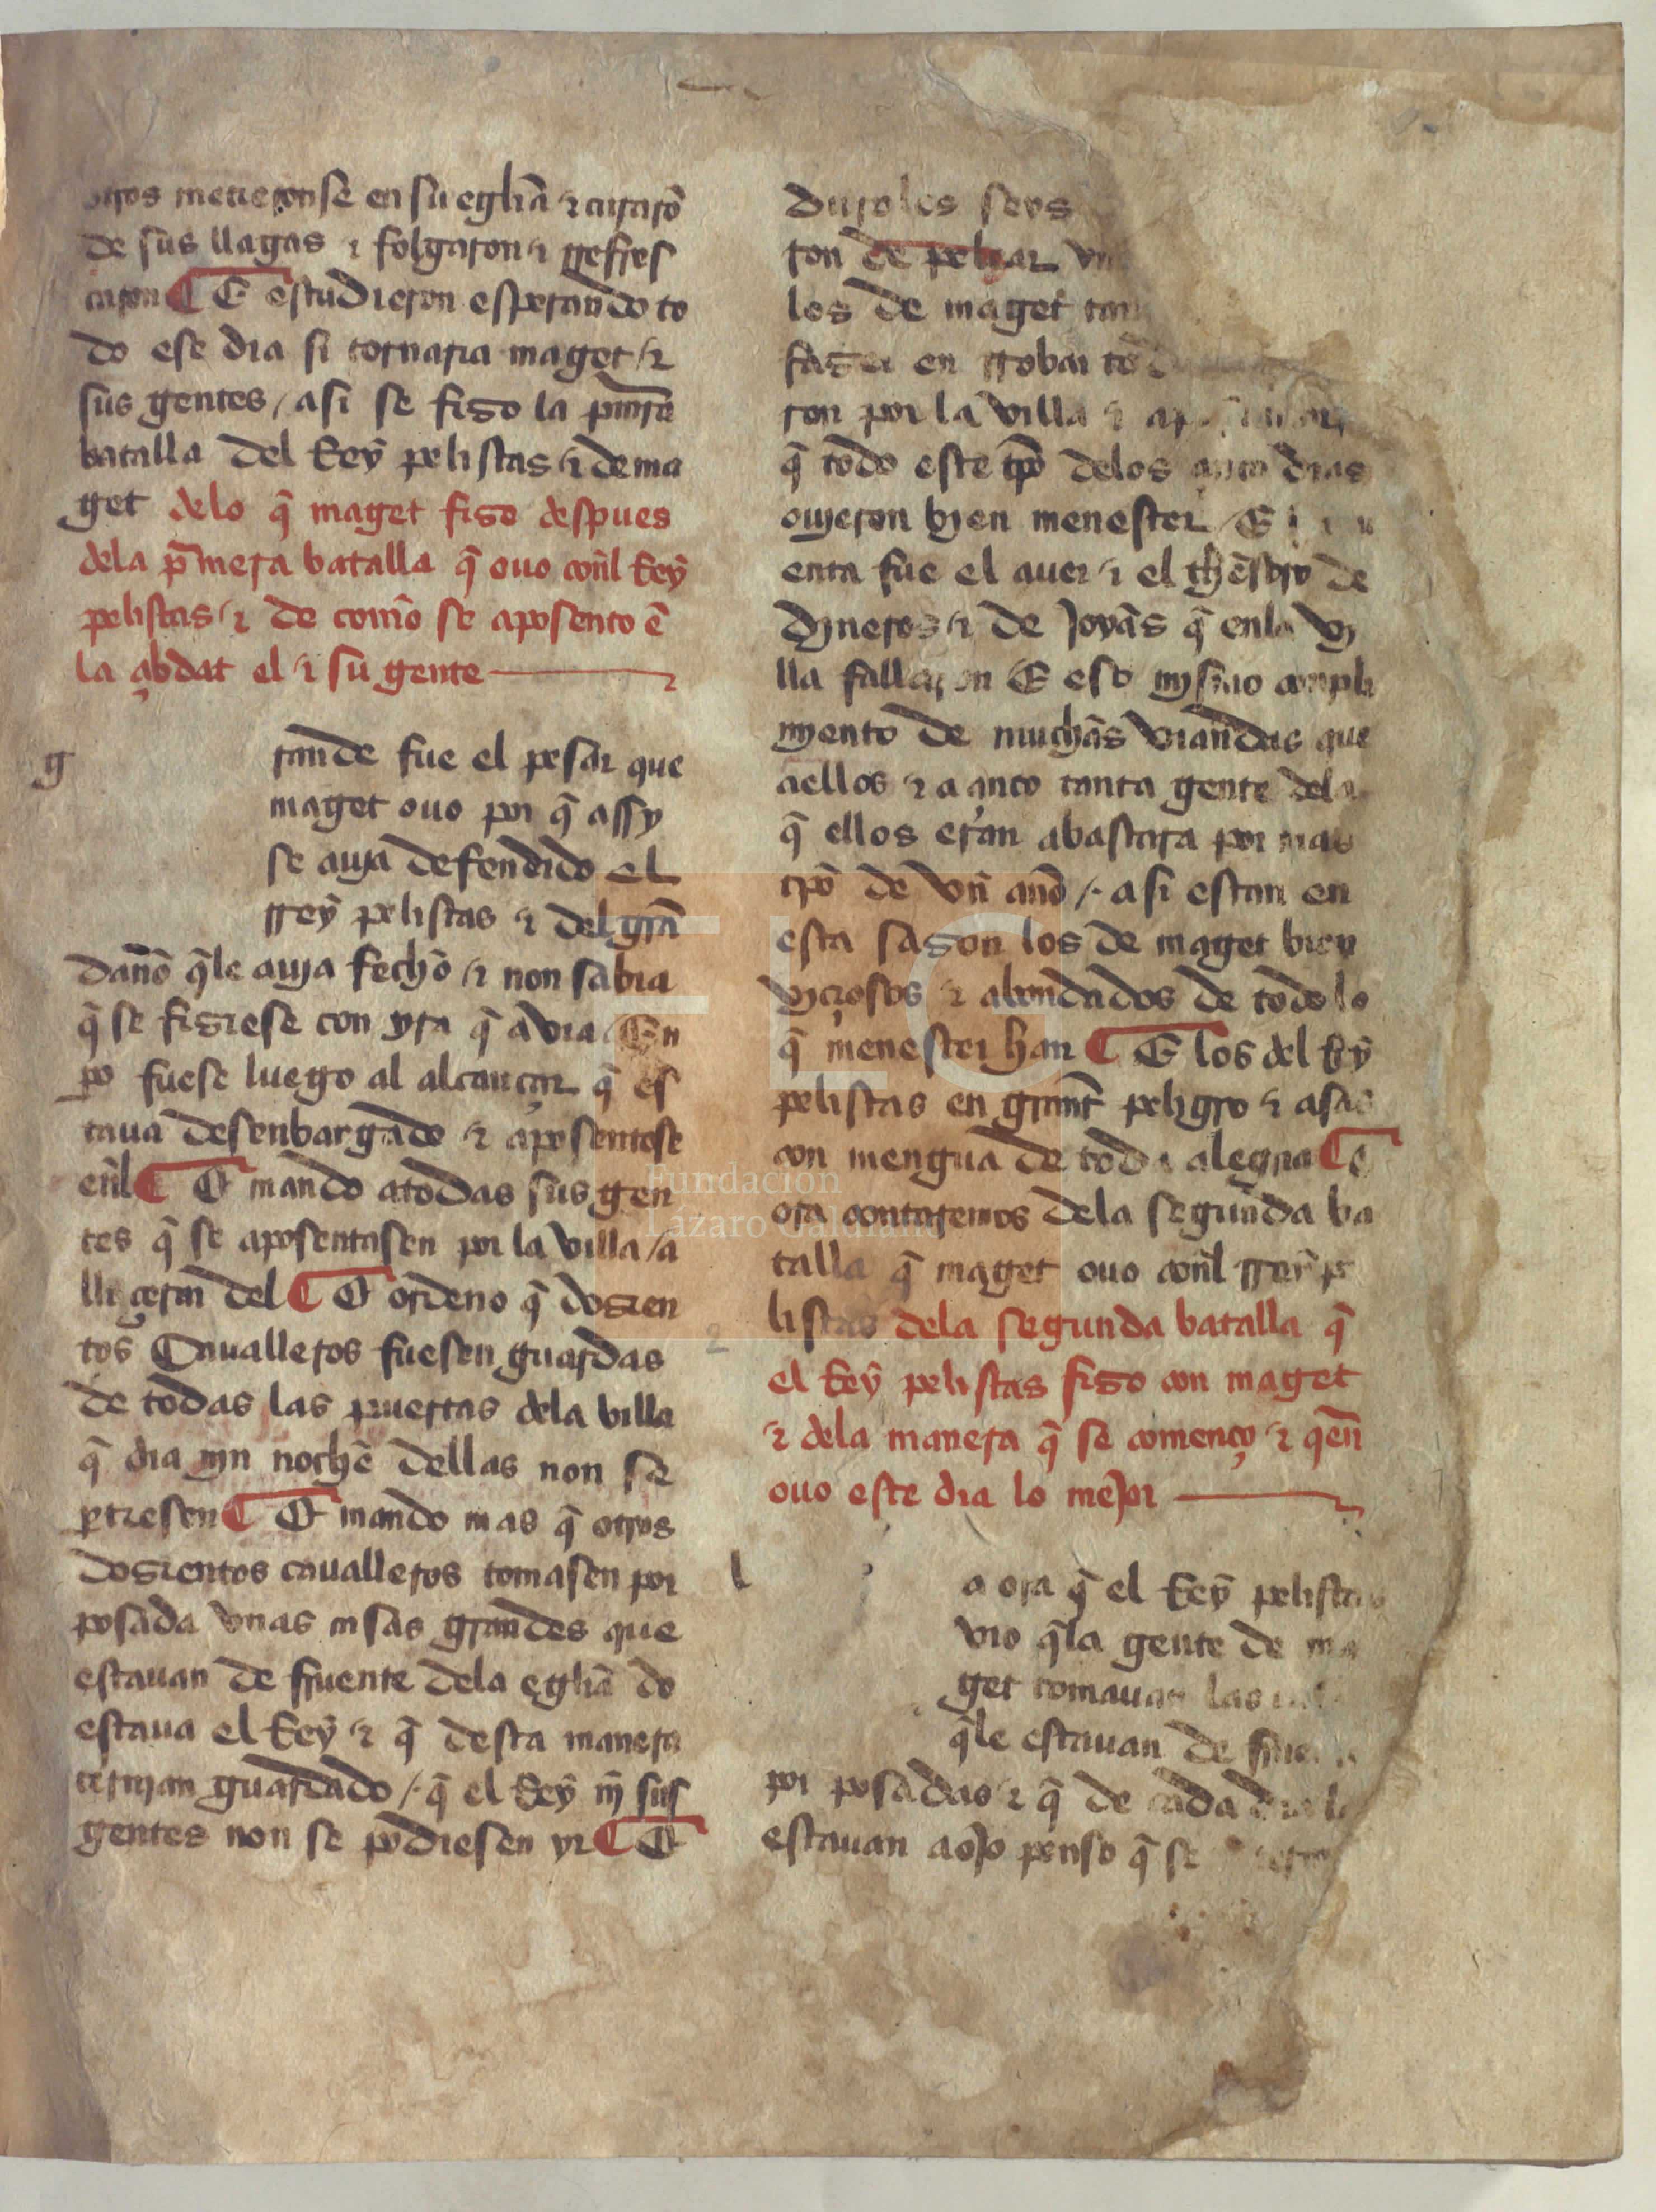 otros metieronse en su eglīa ⁊ curarō
de sus llagas ⁊ folgaron ⁊ rrefres
caron ¶ E estudieron esperando to
do ese dia si tornaria maget ⁊
sus gentes / asi se fizo la pmrā
batalla del Rey pelistas ⁊ de ma
get delo q̄ maget fizo despues
dela p̄mera batalla q̄ ouo conl Rey
pelistas ⁊ de como se aposento ē
la çibdat el ⁊ su gente
g
rande fue el pesar que
maget ouo por q̄ assy
se auja defendido el
rrey pelistas ⁊ del grā
daño q̄le auja fecho ⁊ non sabia
q̄ se fiziese con yra q̄ avia En
po fuese luego al alcançar q̄ es
taua desenbargado ⁊ aposentose
enl ¶ E mando atodas sus gen
tes q̄ se aposentasen por la villa / a
llı çerca del ¶ E ordeno q̄ dozien
tos Caualleros fuesen guardas
de todas las puertas dela villa
q̄ dia njn noche dellas non se
ꝑtiesen ¶ E mando mas q̄ otros
dozientos caualleros tomasen por
posada vnas casas grandes que
estauan de fruente dela eglīa do
estaua el Rey ⁊ q̄ desta manera
ternjan guardado / q̄ el Rey nj̄ sus
gentes non se podiesen yr ¶ E
duroles seys
ron de pelear
los de maget
en rrobar
ron por la villa ⁊
q̄ todo este tp̄o delos dias
oujeron bjen menester E
enta fue el auer ⁊ el thesoro de
djneros ⁊ de joyas q̄ enla vj
lla fallaron E eso mjsmo conpli
mjento de muchas viandas que
aellos ⁊ a çinco tanta gente dela
q̄ ellos eran abastara por mas
tp̄o de vn año / asi estan en
esta sazon los de maget bien
vjçiosos ⁊ abondados de todo lo
q̄ menester han ¶ E los del Rey
pelistas en grant peligro ⁊ asas
con mengua de toda alegria ¶ E
ora contaremos dela segunda ba
talla q̄ maget ouo conl rrey pe
listas dela segunda batalla q̄
el Rey pelistas fizo con maget
⁊ dela manera q̄ se començo ⁊ qen
ouo este dia lo mejor
l
a ora q̄ el Rey pelistas
vio q̄la gente de ma
get tomauan las
q̄le estauan de
por posadas ⁊ q̄ de cada dia
estauan aojo penso q̄ se
Fundación
Lázaro Galdiano
FLG
2